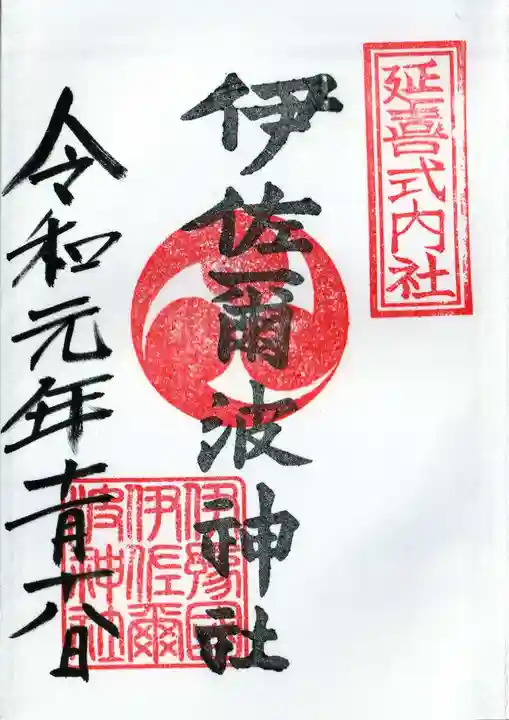 延喜式内社
伊佐爾波神社
伊豫國
伊佐爾
波神社
令和元年十一月十六日